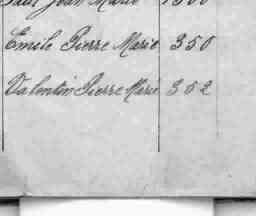 Paul Jean Marie 1300
Emile Pierre Marie 350
Valentin Pierre Marie 352